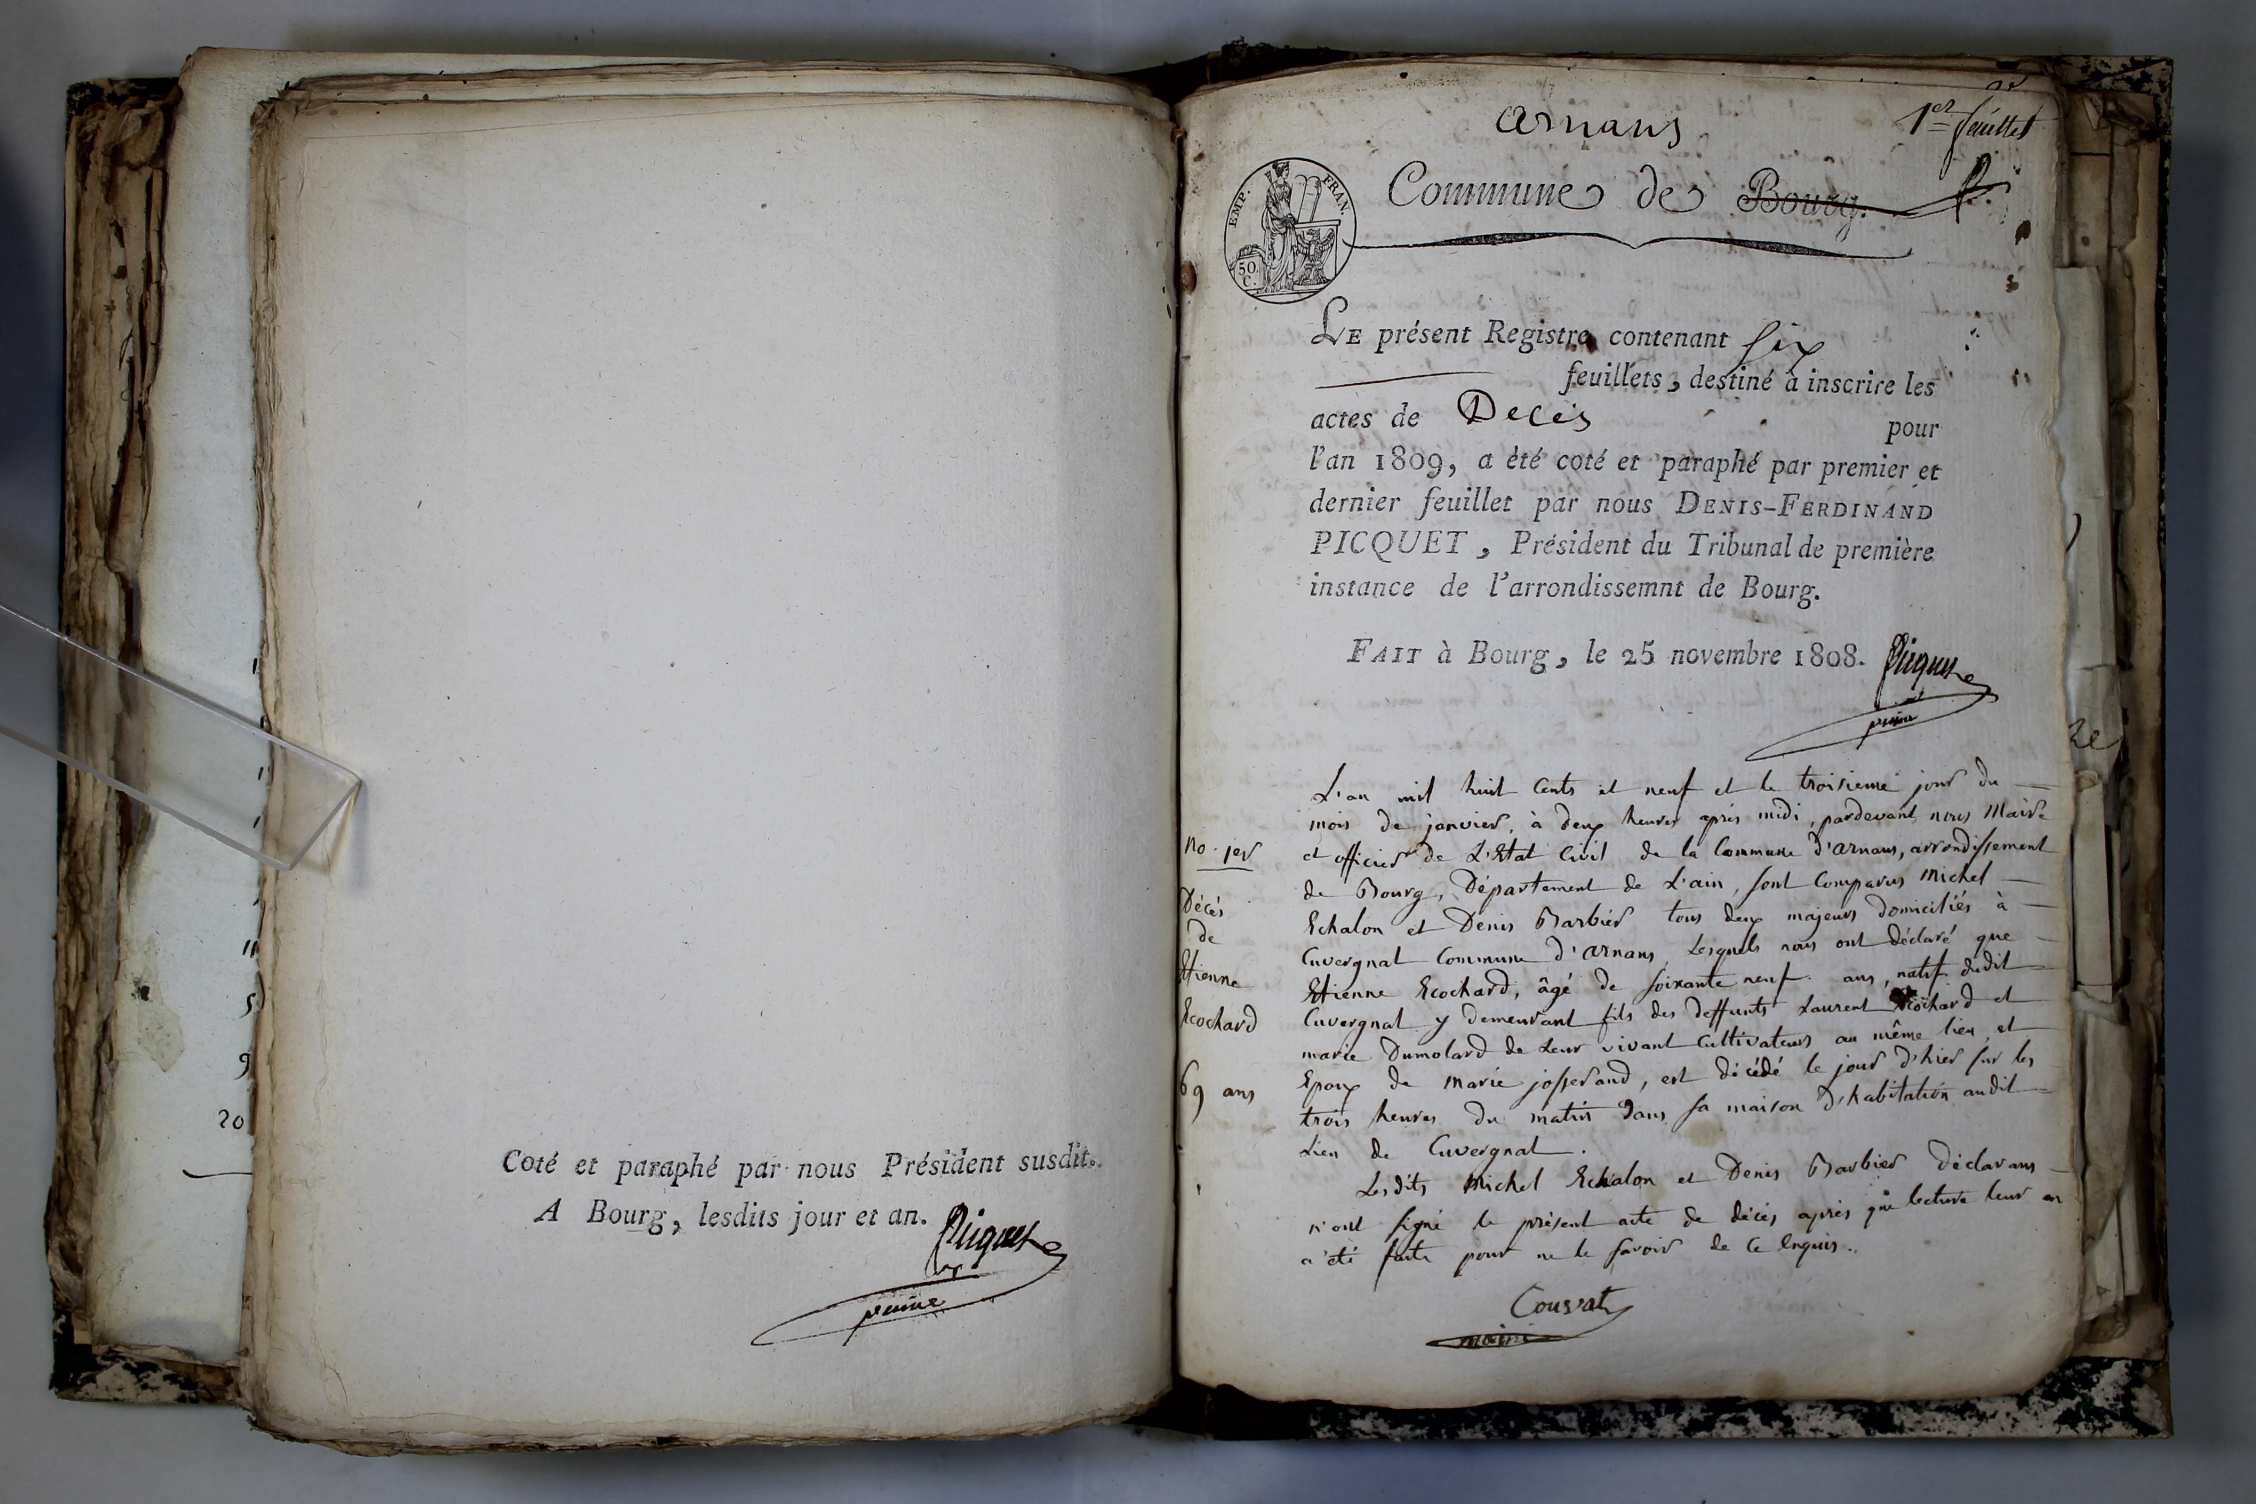 Coté et paraphé par nous Président susdit.
A Bourg, lesdits jour et an.
Picquet
9
20
arnans
1er feuillet
EMP. FRAN.
50
C.
Commune de Bourg.
LE présent Registre contenant six
feuillets, destiné à inscrire les
actes de Decès pour
l'an 1809, a été coté et paraphé par premier et
dernier feuillet par nous DENIS-FERDINAND
PICQUET, Président du Tribunal de première
instance de l'arrondissemnt de Bourg.
FAIT à Bourg, le 25 novembre 1808.
Picquet
no. 1er
Décès
de
Etienne
Ecochard
69 ans
L'an mil huit Cents et neuf et le troisieme jour du
mois de janvier, à deux heures après midi, pardevant nous Maire
et officier de L'Etat Civil de la Commune d'arnans, arrondissement
de Bourg, Département de L'ain, sont Comparus Michel
Echalon et Denis Barbier tous deux majeurs domiciliés à
Cuvergnat Commune d'arnans, Lesquels nous ont déclaré que
Etienne Ecochard, âgé de soixante neuf ans, natif dudit
Cuvergnat y demeurant fils des deffunts Laurent Ecochard et
marie Dumolard de Leur vivant Cultivateurs au même lieu, et
Epoux de marie josserand, est décédé le jour d'hier sur les
trois heures du matin dans sa maison d'habitation audit
Lieu de Cuvergnat.
Lesdits Michel Echalon et Denis Barbier déclarans
n'ont signé le présent acte de décès après que lecture leur en
a été faite pour ne le savoir de ce Enquis.
Couvat
maire